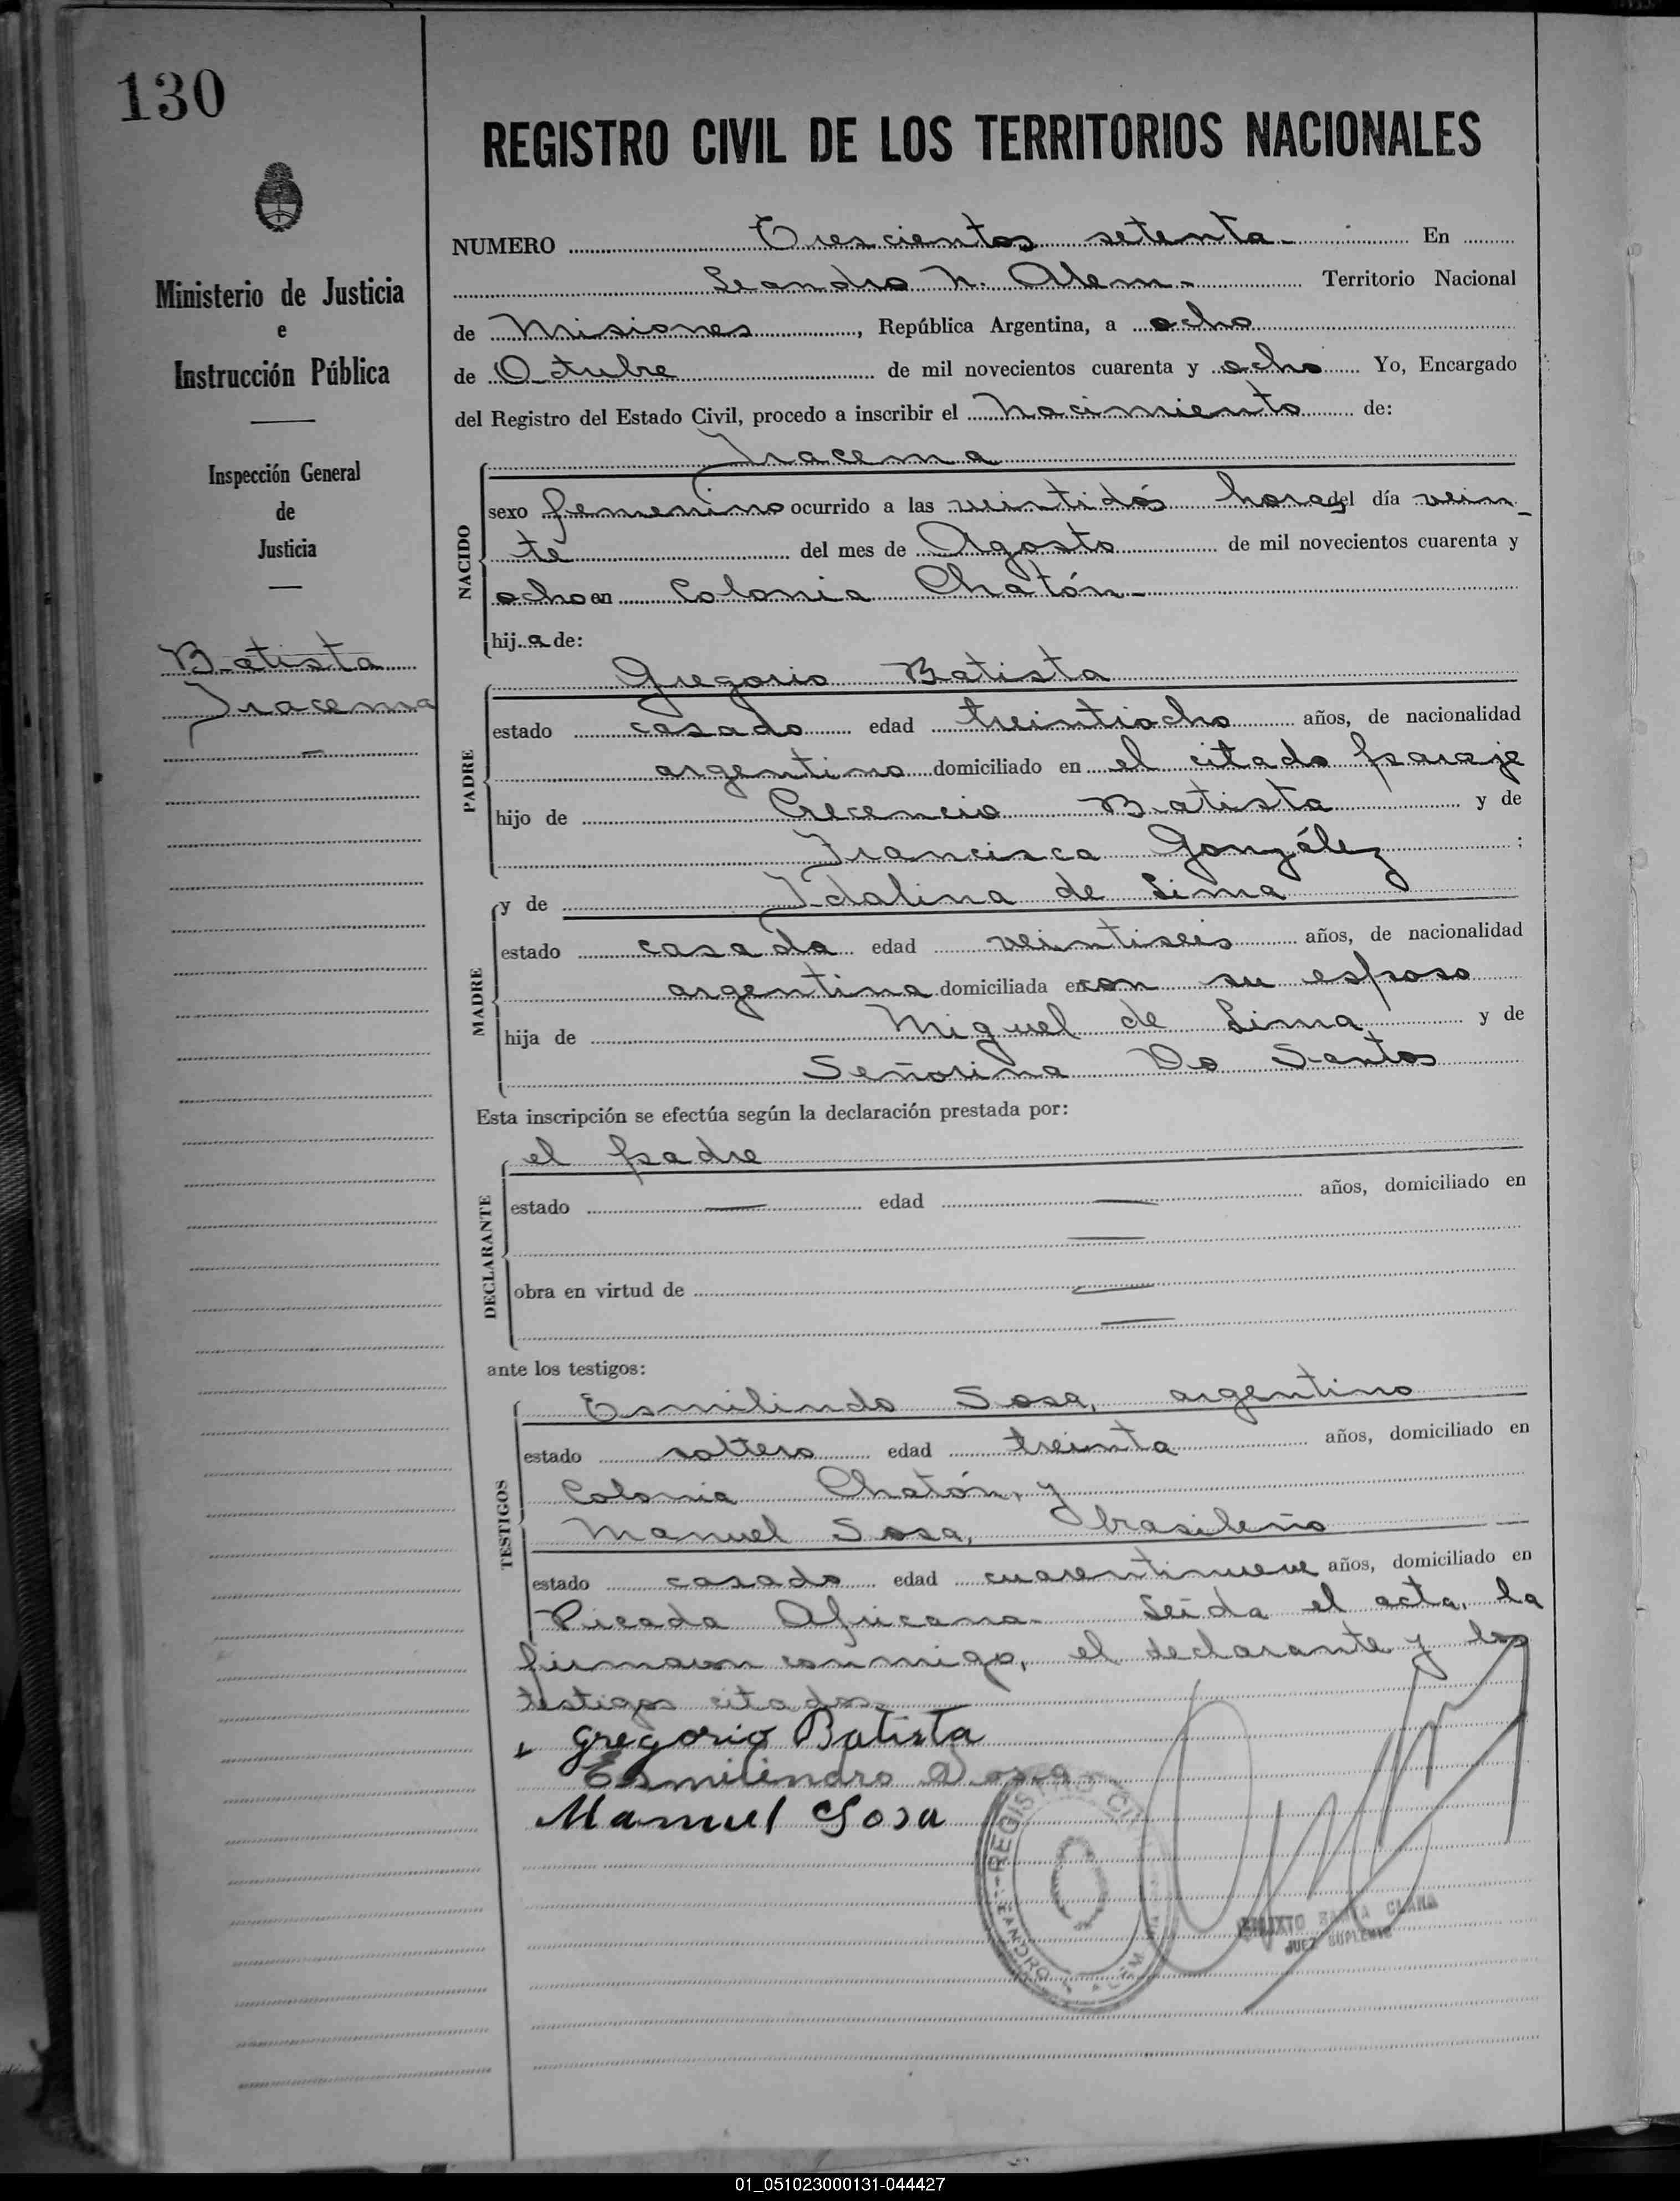 130
REGISTRO CIVIL DE LOS TERRITORIOS NACIONALES
Ministerio de Justicia
e
Instrucción Pública
Inspección General
de
Justicia
Batista
Iracema
NUMERO Trescientos setenta- En
Leandro N. Alem- Territorio Nacional
de Misiones, República Argentina, a ocho
de Octubre de mil novecientos cuarenta y ocho Yo, Encargado
del Registro del Estado Civil, procedo a inscribir el Nacimiento de:
Iracema
NACIDO
sexo femenino ocurrido a las veintidós horas del día vein-
te del mes de Agosto de mil novecientos cuarenta y
ocho en Colonia Chatón-
hija de:
Gregorio Batista
PADRE
estado casado edad treintiocho años, de nacionalidad
argentino domiciliado en el citado paraje
hijo de Crecencio Batista y de
Francisca González;
y de Idalina de Lima
MADRE
estado casada edad veintiseis años, de nacionalidad
argentina domiciliada en con su esposo
hija de Miguel de Lima, y de
Señorina Do Santos
Esta inscripción se efectúa según la declaración prestada por:
el padre
DECLARANTE
estado — edad — años, domiciliado en
—
obra en virtud de —
—
ante los testigos:
Esmilindo Sosa, argentino
TESTIGOS
estado soltero edad treinta años, domiciliado en
Colonia Chatón, y
Manuel Sosa, brasileño
estado casado edad cuarentinueve años, domiciliado en
Picada Africana- Leída el acta, la
firmaron conmigo, el declarante y los
testigos citados.
Gregorio Batista
Esmilindro Sosa
Manuel Sosa
REGISTRO CIVIL
LEANDRO N. ALEM
SANTA CLARA
JUEZ SUPLENTE
01_051023000131-044427